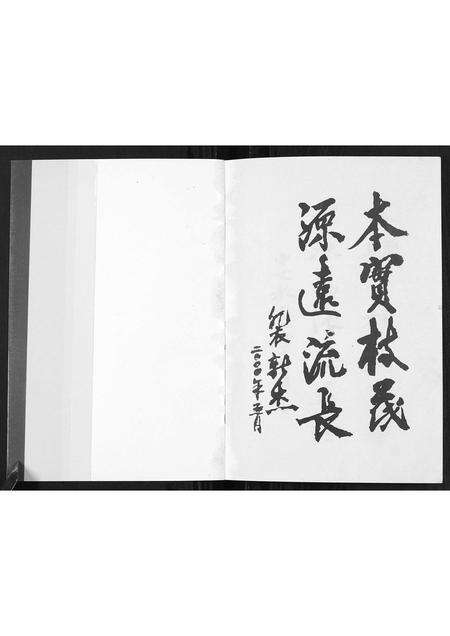 本實枝茂
源遠流長
杰
二〇〇〇年五月